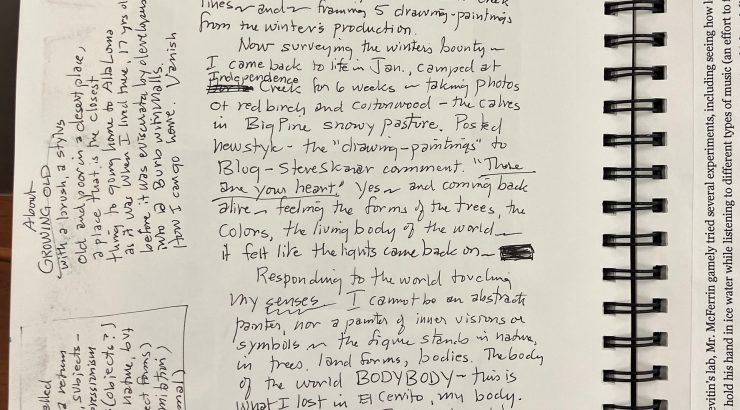 lines ~ and ~ framing 5 drawing-paintings
from the winter's production.
Now surveying the winters bounty ~
I came back to life in Jan., camped at
Independence
Creek for 6 weeks ~ taking photos
of red birch and cottonwood - the calves
in Big Pine snowy pasture. Posted
new style - the "drawing-paintings" to
Blog - Steve comment. "These
are your heart." Yes ~ and coming back
alive ~ feeling the forms of the trees, the
colors, the living body of the world ~
it felt like the lights came back on ~
Responding to the world touching
my senses. I cannot be an abstract
painter, nor a painter of inner visions or
symbols ~ the figure stands in nature,
in trees, land forms, bodies. The body
of the world BODYBODY ~ this is
what I lost in El Cerrito, my body.
About
GROWING OLD
with a brush, a stylus
old and poor in a desert place,
a place that is the closest
thing to going home to Alta Loma
as it was when I lived there, 17 yrs
before it was eviscerated by developers
into a Burb with malls.
how I can go home. Vanish
a return
subjects -
(objects?)
nature, by
forms)
evitin's lab, Mr. McFerrin gamely tried several experiments, including seeing how
hold his hand in ice water while listening to different types of music (an effort to